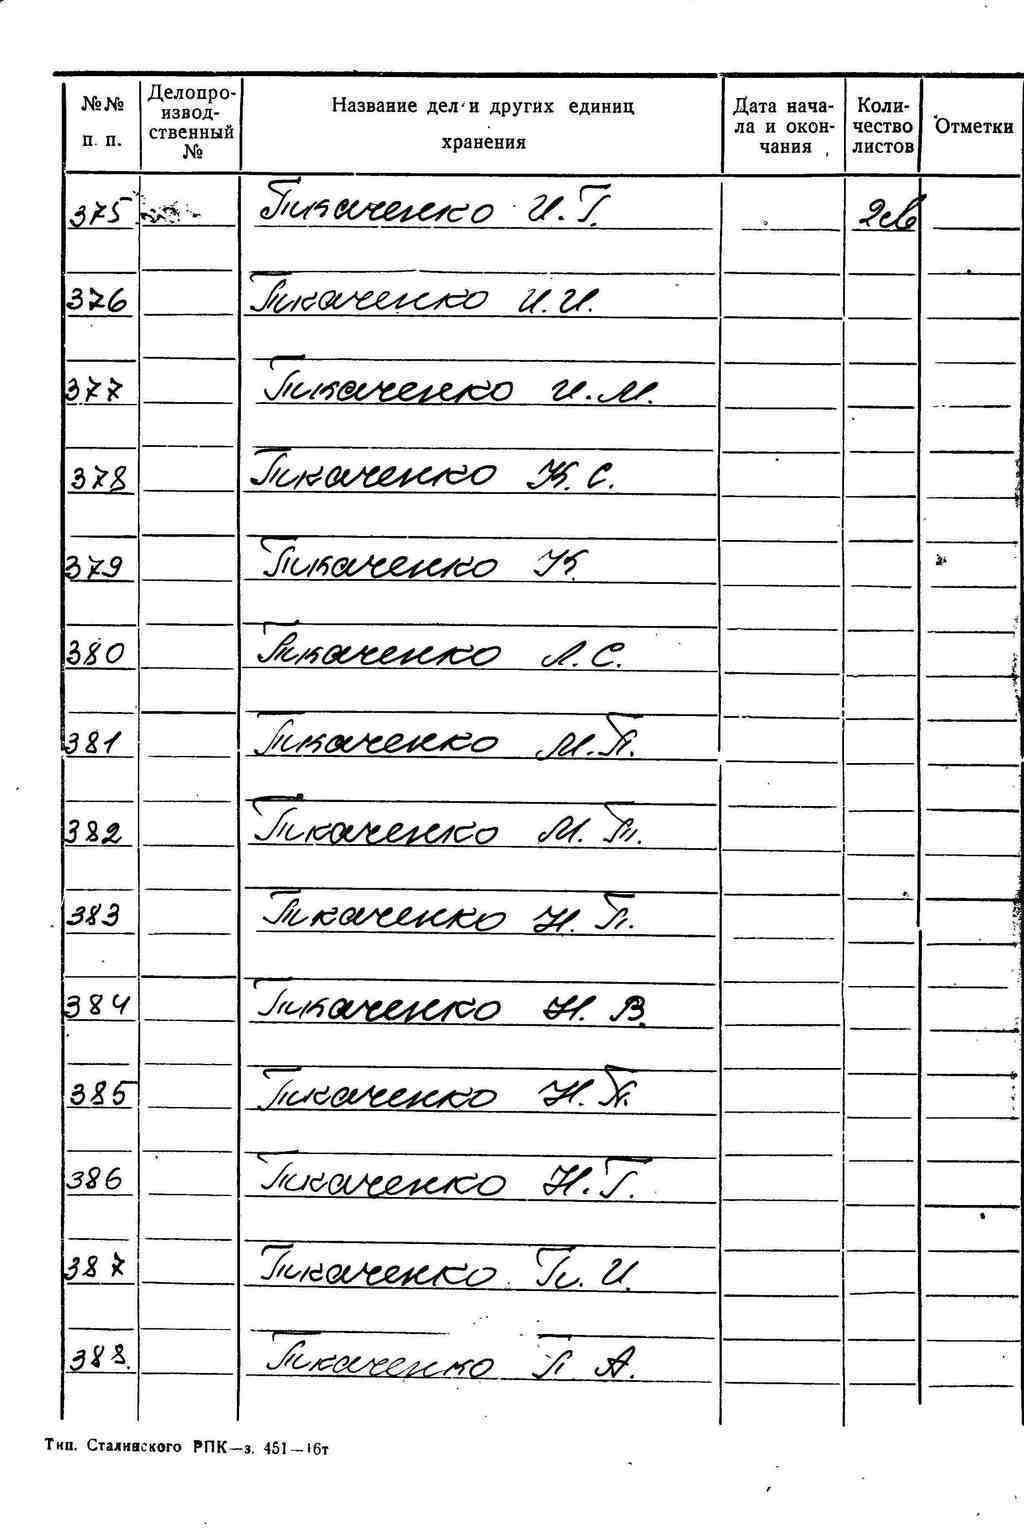 №№ п. п.
Делопро-
извод-
ственный
№
Название дел и других единиц
хранения
Дата нача-
ла и окон-
чания
Коли-
чество
листов
Отметки
375 Ткаченко И. Г.
376 Ткаченко И. И.
377 Ткаченко И. М.
378 Ткаченко К. С.
379 Ткаченко К.
380 Ткаченко Л. С.
381 Ткаченко М. П.
382 Ткаченко М. Т.
383 Ткаченко Н. П.
384 Ткаченко Н. В.
385 Ткаченко Н. П.
386 Ткаченко Н. Г.
387 Ткаченко П. И.
388. Ткаченко П А.
Тип. Сталинского РПК—з. 451—16т